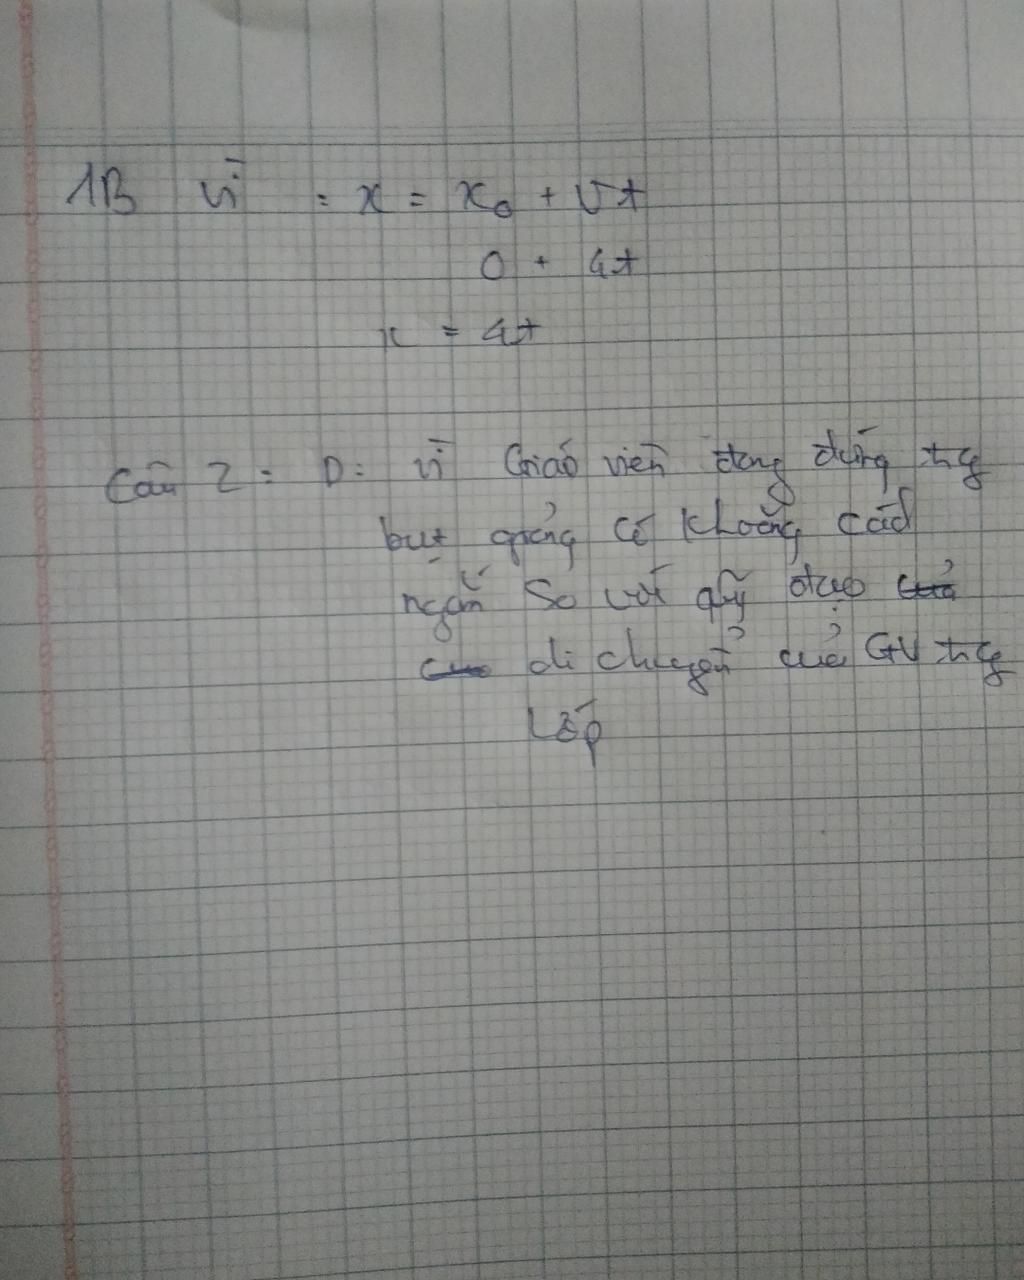 1B vì : x = x₀ + vt
0 + 4t
x = 4t
Câu 2 : D : vì Giáo viên đang đứng trg
bục giảng có khoảng cách
ngắn so với quỹ đạo
di chuyển của GV trg
Lớp